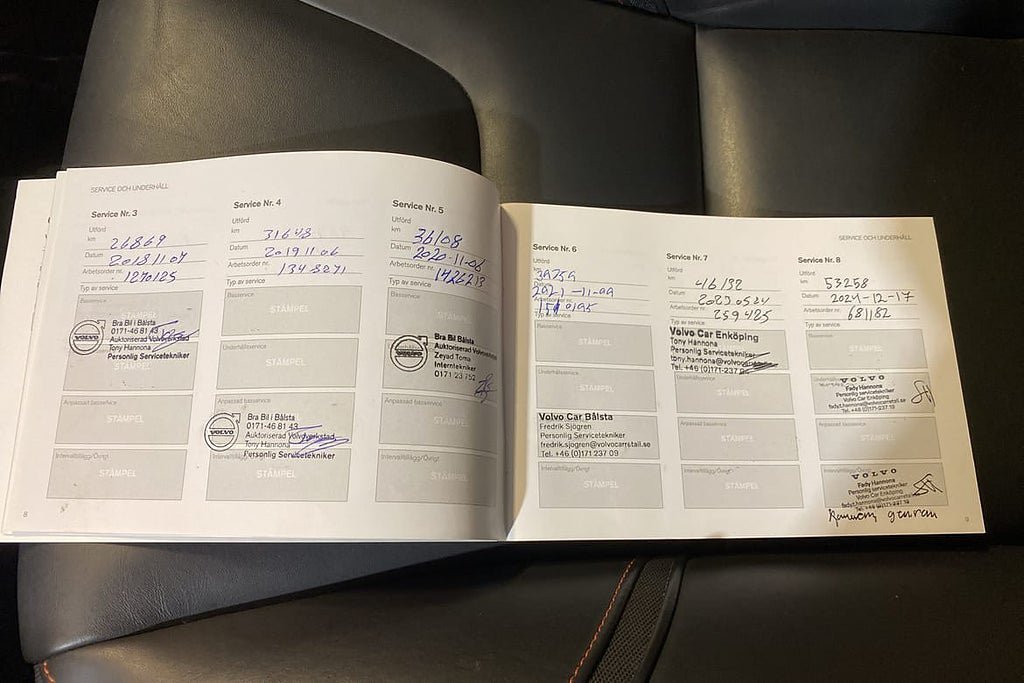 SERVICE OCH UNDERHÅLL
Service Nr. 3
Utförd
km 26869
Datum 20181107
Arbetsorder nr. 1270125
Typ av service
Basservice
STÄMPEL
VOLVO
Bra Bil i Bålsta
0171-46 81 43
Auktoriserad Volvoverkstad
Tony Hannona
Personlig Servicetekniker
STÄMPEL
Anpassad basservice
STÄMPEL
Intervalltillägg/Övrigt
STÄMPEL
8
Service Nr. 4
Utförd
km 31648
Datum 20191106
Arbetsorder nr. 1348271
Typ av service
Basservice
STÄMPEL
Underhållsservice
STÄMPEL
VOLVO
Bra Bil i Bålsta
0171-46 81 43
Auktoriserad Volvoverkstad
Tony Hannona
Personlig Servicetekniker
Intervalltillägg/Övrigt
STÄMPEL
Service Nr. 5
Utförd
km 36108
Datum 2020-11-06
Arbetsorder nr. 1426213
Typ av service
Basservice
STÄMPEL
VOLVO
Bra Bil Bålsta
Auktoriserad Volvoverkstad
Zeyad Toma
Interntekniker
0171 23 752
Anpassad basservice
STÄMPEL
Intervalltillägg/Övrigt
STÄMPEL
SERVICE OCH UNDERHÅLL
Service Nr. 6
Utförd
km
Datum 2021-11-09
Arbetsorder nr.
Typ av service
Basservice
STÄMPEL
Underhållsservice
STÄMPEL
Volvo Car Bålsta
Fredrik Sjögren
Personlig Servicetekniker
fredrik.sjogren@volvocarretail.se
Tel. +46 (0)171-237 09
Intervalltillägg/Övrigt
STÄMPEL
Service Nr. 7
Utförd
km 46132
Datum 20230524
Arbetsorder nr. 259425
Typ av service
Volvo Car Enköping
Tony Hannona
Personlig Servicetekniker
Tel. +46 (0)171-237
Underhållsservice
STÄMPEL
Anpassad basservice
STÄMPEL
Intervalltillägg/Övrigt
STÄMPEL
Service Nr. 8
Utförd
km 53258
Datum 2024-12-17
Arbetsorder nr. 681182
Typ av service
Basservice
STÄMPEL
VOLVO
Fady Hannona
Personlig servicetekniker
Volvo Car Enköping
fady.hannona@volvocarretail.se
Tel. +46 (0)171-237 19
Anpassad basservice
STÄMPEL
VOLVO
Fady Hannona
Personlig servicetekniker
Volvo Car Enköping
9